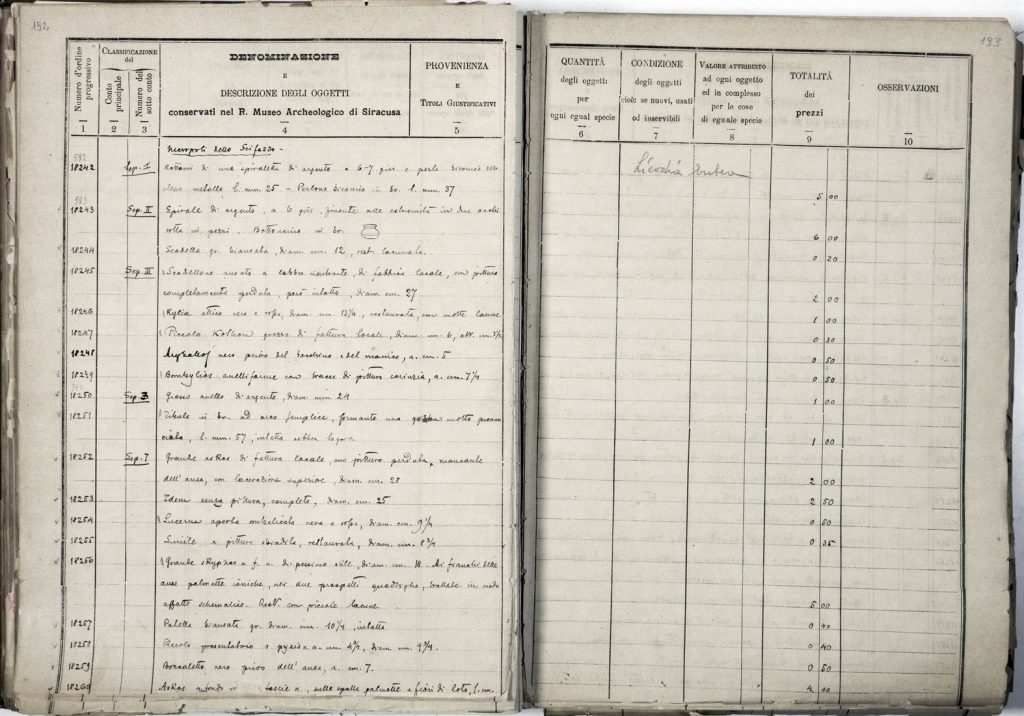 192
Numero d'ordine progressivo
CLASSIFICAZIONE del
Conto principale
Numero del sotto conto
DENOMINAZIONE
E
DESCRIZIONE DEGLI OGGETTI
conservati nel R. Museo Archeologico di Siracusa
PROVENIENZA
E
TITOLI GIUSTIFICATIVI
1 2 3 4 5
Necropoli dello Scifazzo -
582
18242 Sep. I Rottami di una spiraletta di argento a 6-7 giri e perla biconica dello
stesso metallo l. mm. 25 - Perlone biconico in br. l. mm. 37
583
18243 Sep. II Spirale di argento, a 6 giri, finiente alle estremità in due occhi
rotta in pezzi. Bottoncino in br.
18244 Scodella gr. biansata, diam. cm. 12, rest. lacunata.
18245 Sep. III Scodellone ansato a labbro rientrante, di fabbrica locale, con pittura
completamente perduta, però intatto, diam. cm. 27
18246 Kylix attica nera e rossa, diam. cm 13¼, restaurata, con molte lacune
18247 Piccolo pezzo di fattura locale, diam. cm. 6, alt. cm.
18248 nero privo del e del manico, a. cm. 5
18249 Bombylios anelliforme con tracce di pittura corinzia, a. cm. 7¼
18250 Sep. Grosso anello di argento, diam. mm 24
18251 Fibula in br. ad arco semplice, formante una molto pronun
ciata, l. mm. 57, intatta sebbene logora
18252 Sep. 7 Grande askos di fattura locale, con pittura perduta, mancante
dell'ansa, con lacerazione superiore, diam. cm. 28
18253 Idem senza pittura, completo, diam. cm. 25
18254 Lucerna aperta ombelicata nera e rossa, diam. cm. 9¼
18255 Simile a pittura svanita, restaurata, diam. cm. 8¾
18256 Grande skyphos a f. n. di pessimo stile, diam. cm. 18. Ai fianchi delle
anse palmette ioniche, nei due prospetti quadrighe, trattate in modo
affatto schematico. Rest. con piccole lacune
18257 Patella biansata gr. diam. cm. 10¼, intatta
18258 Piccolo o pyxis a. cm. diam. cm. 9¾.
18259 Boccaletto nero privo dell'ansa, a. cm. 7.
18260 Askos a fasce n., sulle spalle palmette e fiori di loto, l. cm.
193
QUANTITÀ
degli oggetti
per
ogni egual specie
CONDIZIONE
degli oggetti
cioè: se nuovi, usati
od inservibili
VALORE ATTRIBUITO
ad ogni oggetto
ed in complesso
per le cose
di eguale specie
TOTALITÀ
dei
prezzi
OSSERVAZIONI
6 7 8 9 10
Licodia Eubea
5 00
6 00
0 20
2 00
1 00
0 30
0 50
0 50
1 00
1 00
2 00
2 50
0 50
0 35
5 00
0 40
0 40
0 50
4 00